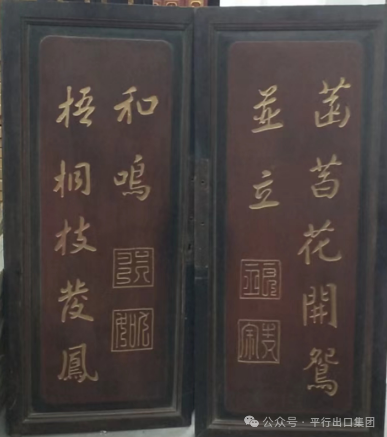 菡萏花開鴛
並立
梧桐枝發鳳
和鳴
公众号 · 平行出口集团